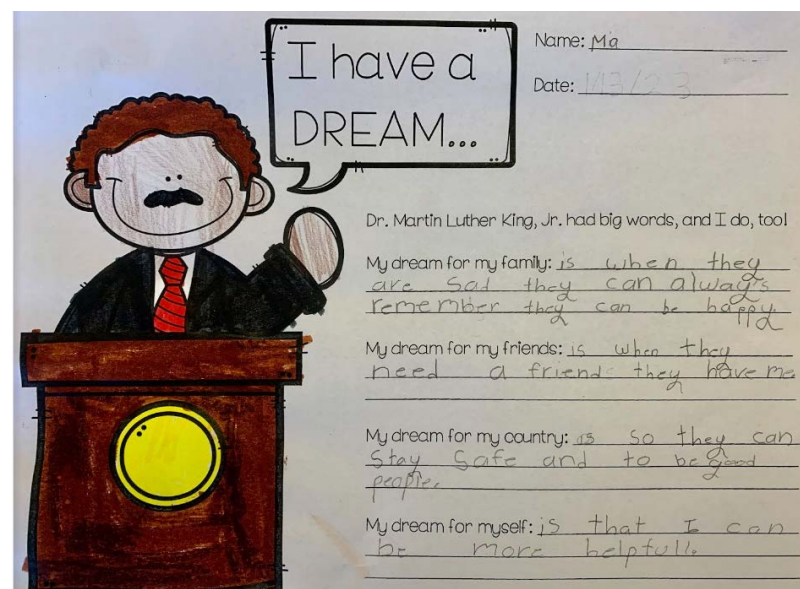 I have a
DREAM...
Name: Mia
Date: 1/13/23
Dr. Martin Luther King, Jr. had big words, and I do, too!
My dream for my family: is when they
are sad they can always
remember they can be happy.
My dream for my friends: is when they
need a friend they have me
My dream for my country: is so they can
Stay Safe and to be good
people.
My dream for myself: is that I can
be more helpfull.